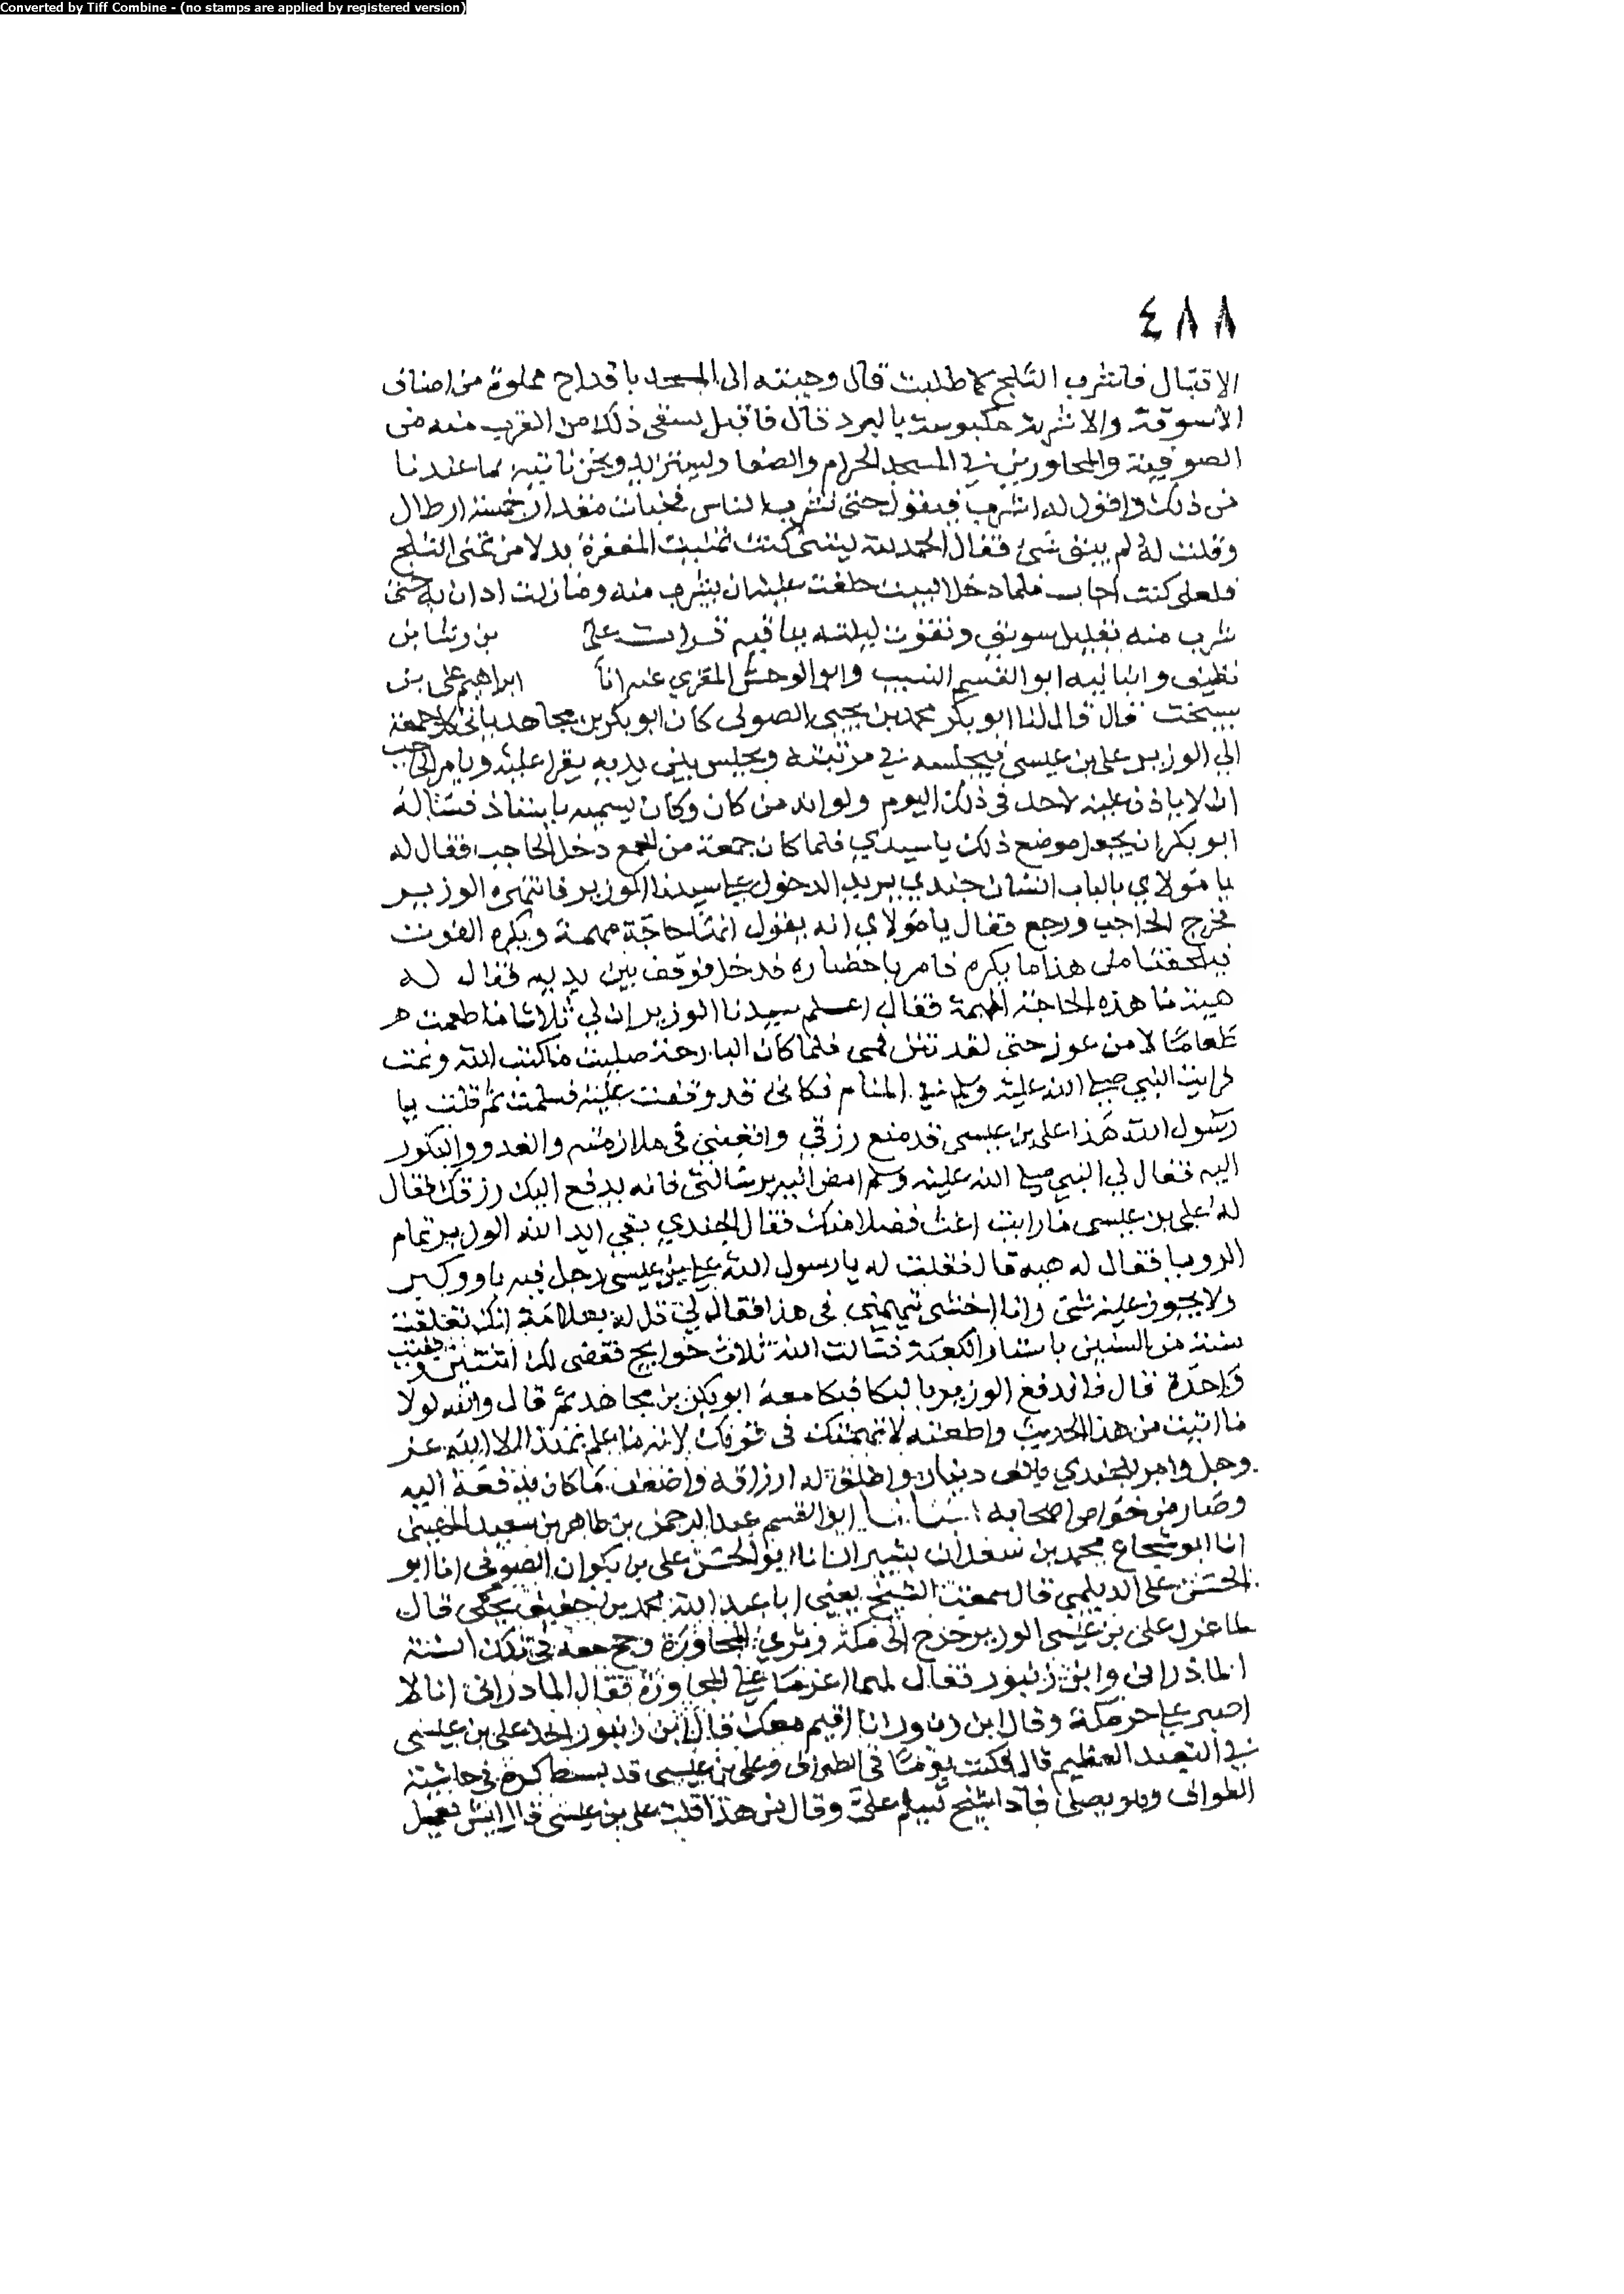 Converted by Tiff Combine - (no stamps are applied by registered version)
٤٨٨
الاقبال فاشرب الثلج كما طلبت قال وجيته الى المسجد باقداح مملوة من اصناف
الاسوقة والاشربة مكبوسة بالبرد قال فاقبل يسقى ذلك من القرب منه من
الصوفية والمجاورين في المسجد الحرام والضعفا ويستزيد ونحن ناتيه بما عندنا
من ذلك واقول له اشرب فيقول حتى يشرب الناس فخبات مقدار خمسة ارطال
وقلت له لم يبق شئ فقال الحمد لله ليتنى كنت تمنيت المغفرة بدلا من تمنى الثلج
فلعلى كنت اجاب فلما دخل البيت حلفت عليه ان يشرب منه وما زلت اداريه حتى
شرب منه بقليل سويق وتقوت ليلته بباقيه قرات على بن رشا بن
نظيف وانبانيه ابو القسم النسيب وابو الوحش المقري عنه انا ابراهيم على بن
سيبخت قال قال لنا ابو بكر محمد بن يحيى الصولى كان ابو بكر بن مجاهد ياتى كل جمعة
الى الوزير على بن عيسى فيجلسه في مرتبته ويجلس بين يديه يقرا عليه ويامر الحاجب
ان لا ياذن عليه لاحد فى ذلك اليوم ولو انه من كان وكان يسميه ياستاذ فساله
ابو بكر ان يجعل موضع ذلك ياسيدي فلما كان جمعة من الجمع دخل الحاجب فقال له
يا مولاي بالباب انسان جندي يريد الدخول على سيدنا الوزير فانتهره الوزير
فخرج الحاجب ورجع فقال يا مولاي انه يقول ان حاجة مهمة ويكره الفوت
فيلحقنا من هذا ما يكره فامر باحضاره فدخل فوقف بين يديه فقال له
هيه ما هذه الحاجة المهمة فقال اعلم سيدنا الوزير ان لي ثلاثا ما طعمت
طعاما لا من عوز حتى لقد تغير فمى فلما كان البارحة صليت ما كتب الله ونمت
فرايت النبي صلى الله عليه وسلم في المنام فكانى قد وقفت عليه فسلمت ثم قلت يا
رسول الله هذا على بن عيسى قد منع رزقي واتعبني فى ملازمته والغدو والبكور
اليه فقال لي النبي صلى الله عليه وسلم امض اليه برسالتى فانه يدفع اليك رزقك فقال
له على بن عيسى ما رايت اغث فضلا منك فقال الجندي بقي ايد الله الوزير تمام
الرويا فقال له هيه قال فقلت له يا رسول الله على بن عيسى رجل فيه باو وكبر
ولا يجوز عليه شئ وانا اخشى يتهمني فى هذا فقال لي قل له بعلامة انك تعلقت
سنة من السنين باستار الكعبة فسالت الله ثلاث حوايج فقضى لك اثنتين وبقيت
واحدة قال فاندفع الوزير بالبكا فبكا معه ابو بكر بن مجاهد ثم قال والله لولا
ما اتيت من هذا الحديث واطعته لاتهمتك فى قولك لانه ما علم بهذا الا الله عز
وجل وامر للجندي بالفى دينار واطلق له ارزاقه واضعف ما كان يدفعه اليه
وصار من خواص اصحابه انبانا ابو القسم عبد الرحمن بن طاهر بن سعيد الميهنى
انا ابو شجاع محمد بن سعدان بشيراز انا ابو الحسن على بن بكران الصوفى انا ابو
الحسن على الديلمي قال سمعت الشيخ يعني ابا عبد الله محمد بن خفيف يحكى قال
لما عزل على بن عيسى الوزير خرج الى مكة ونوى المجاورة وحج معه فى تلك السنة
الماذرائى وابن زنبور فقال لهما اعزما على المجاورة فقال الماذرائى انا لا
اصبر على حر مكة وقال ابن زنبور انا اقيم معك قال ابن زنبور اخذ على بن عيسى
في التعبد العظيم قال فكنت يوما فى الطواف وعلى بن عيسى قد بسط كره فى حاشية
الطواف وهو يصلى فاذا شيخ يسلم على وقال من هذا قلت على بن عيسى قال ايش يعمل